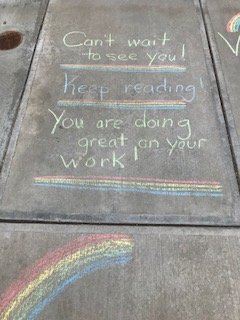 Can't wait
to see you!
Keep reading!
You are doing
great on your
work!